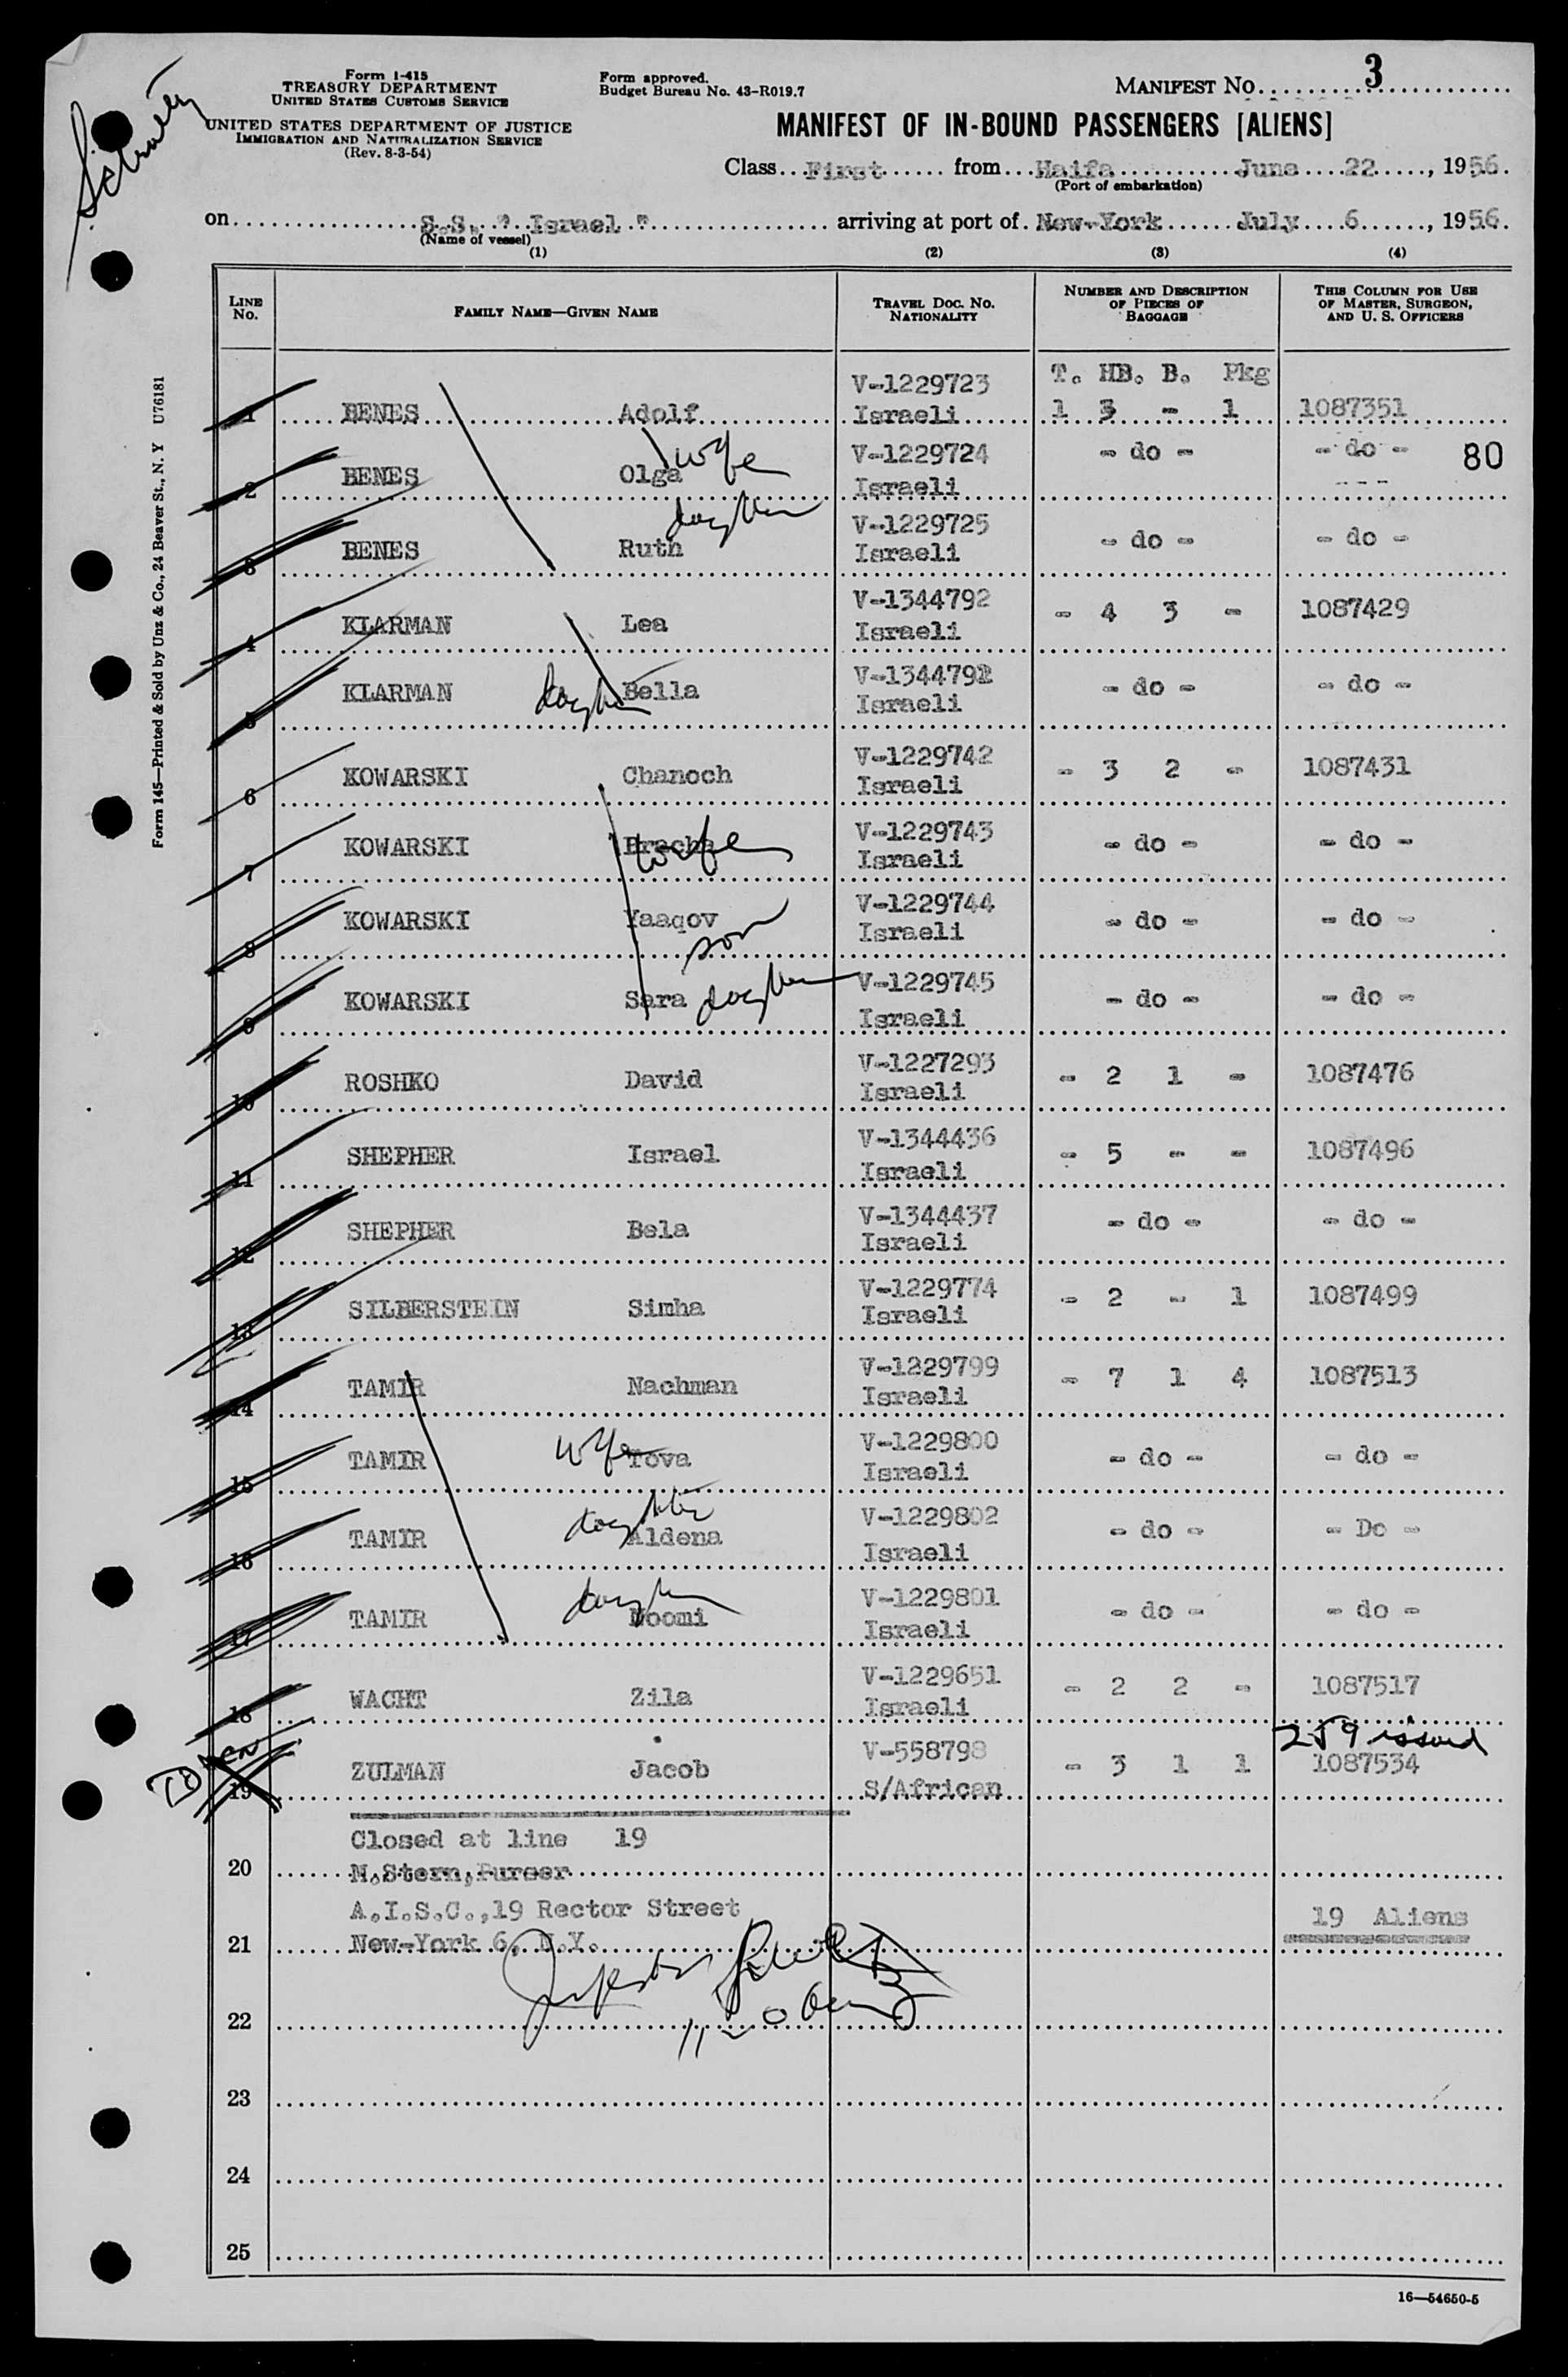 Form I-415
TREASURY DEPARTMENT
UNITED STATES CUSTOMS SERVICE
UNITED STATES DEPARTMENT OF JUSTICE
IMMIGRATION AND NATURALIZATION SERVICE
(Rev. 8-3-54)
Form approved.
Budget Bureau No. 43-R019.7
MANIFEST NO. 3
MANIFEST OF IN-BOUND PASSENGERS [ALIENS]
Class First from Haifa June 22, 1956.
(Port of embarkation)
on S.S. " Israel " arriving at port of New-York July 6, 1956.
(Name of vessel)
(1) (2) (3) (4)
LINE NO. FAMILY NAME—GIVEN NAME TRAVEL DOC. NO. NATIONALITY NUMBER AND DESCRIPTION OF PIECES OF BAGGAGE THIS COLUMN FOR USE OF MASTER, SURGEON, AND U. S. OFFICERS
T. HB. B. Pkg
1 BENES Adolf V-1229723 Israeli 1 3 - 1 1087351
2 BENES Olga wife V-1229724 Israeli - do - - do - 80
3 BENES Ruth daughter V-1229725 Israeli - do - - do -
4 KLARMAN Lea V-1344792 Israeli - 4 3 - 1087429
5 KLARMAN daughter Bella V-1344792 Israeli - do - - do -
6 KOWARSKI Chanoch V-1229742 Israeli - 3 2 - 1087431
7 KOWARSKI Bracha wife V-1229743 Israeli - do - - do -
8 KOWARSKI Yaaqov son V-1229744 Israeli - do - - do -
9 KOWARSKI Sara daughter V-1229745 Israeli - do - - do -
10 ROSHKO David V-1227293 Israeli - 2 1 - 1087476
11 SHEPHER Israel V-1344436 Israeli - 5 - - 1087496
12 SHEPHER Bela V-1344437 Israeli - do - - do -
13 SILBERSTEIN Simha V-1229774 Israeli - 2 - 1 1087499
14 TAMIR Nachman V-1229799 Israeli - 7 1 4 1087513
15 TAMIR wife Tova V-1229800 Israeli - do - - do -
16 TAMIR daughter Aldena V-1229802 Israeli - do - - Do -
17 TAMIR daughter Noomi V-1229801 Israeli - do - - do -
18 WACHT Zila V-1229651 Israeli - 2 2 - 1087517
259 issued
19 ZULMAN Jacob V-558798 S/African - 3 1 1 1087534
Closed at line 19
20 N.Stern, Purser
A.I.S.C., 19 Rector Street
19 Aliens
21 New-York 6, N.Y.
22
23
24
25
16—54650-5
Form 145—Printed & Sold by Unz & Co., 24 Beaver St., N. Y U76181